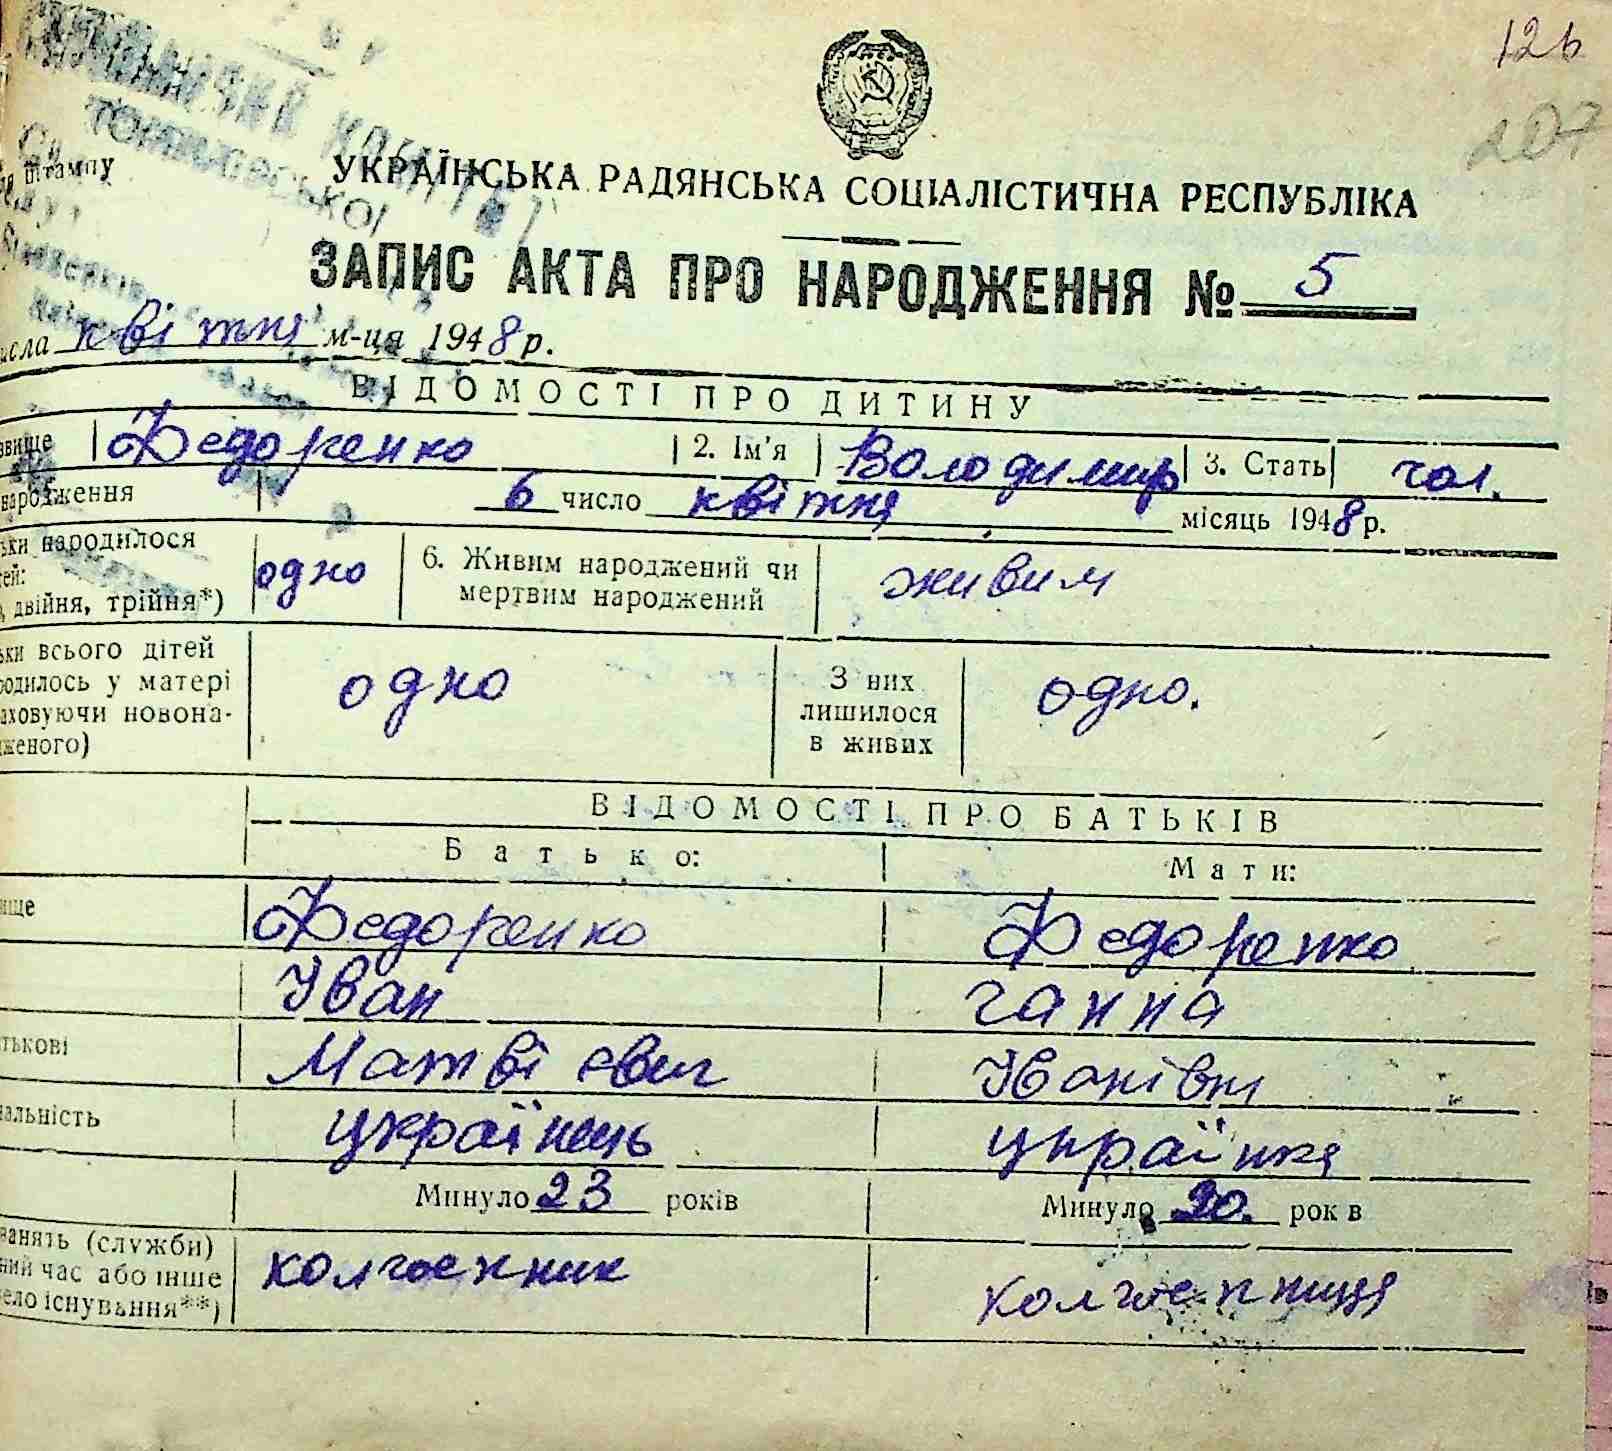 126
207
штампу
ТОМАШОВСЬКОЇ
УКРАЇНСЬКА РАДЯНСЬКА СОЦІАЛІСТИЧНА РЕСПУБЛІКА
ЗАПИС АКТА ПРО НАРОДЖЕННЯ № 5
исла квітня м-ця 1948 р.
ВІДОМОСТІ ПРО ДИТИНУ
звище Федоренко 2. Ім'я Володимир 3. Стать чол.
народження 6 число квітня місяць 1948 р.
ьки народилося одно 6. Живим народжений чи живим
тей: мертвим народжений
, двійня, трійня*)
ьки всього дітей одно З них одно.
родилось у матері лишилося
аховуючи новона- в живих
дженого)
ВІДОМОСТІ ПРО БАТЬКІВ
Батько: Мати:
ище Федоренко Федоренко
Іван Ганна
тькові Матвієвич Іванівни
нальність українець українка
Минуло 23 років Минуло 20. рок в
занять (служби) колгоспник колгоспниця
ний час або інше
ело існування**)